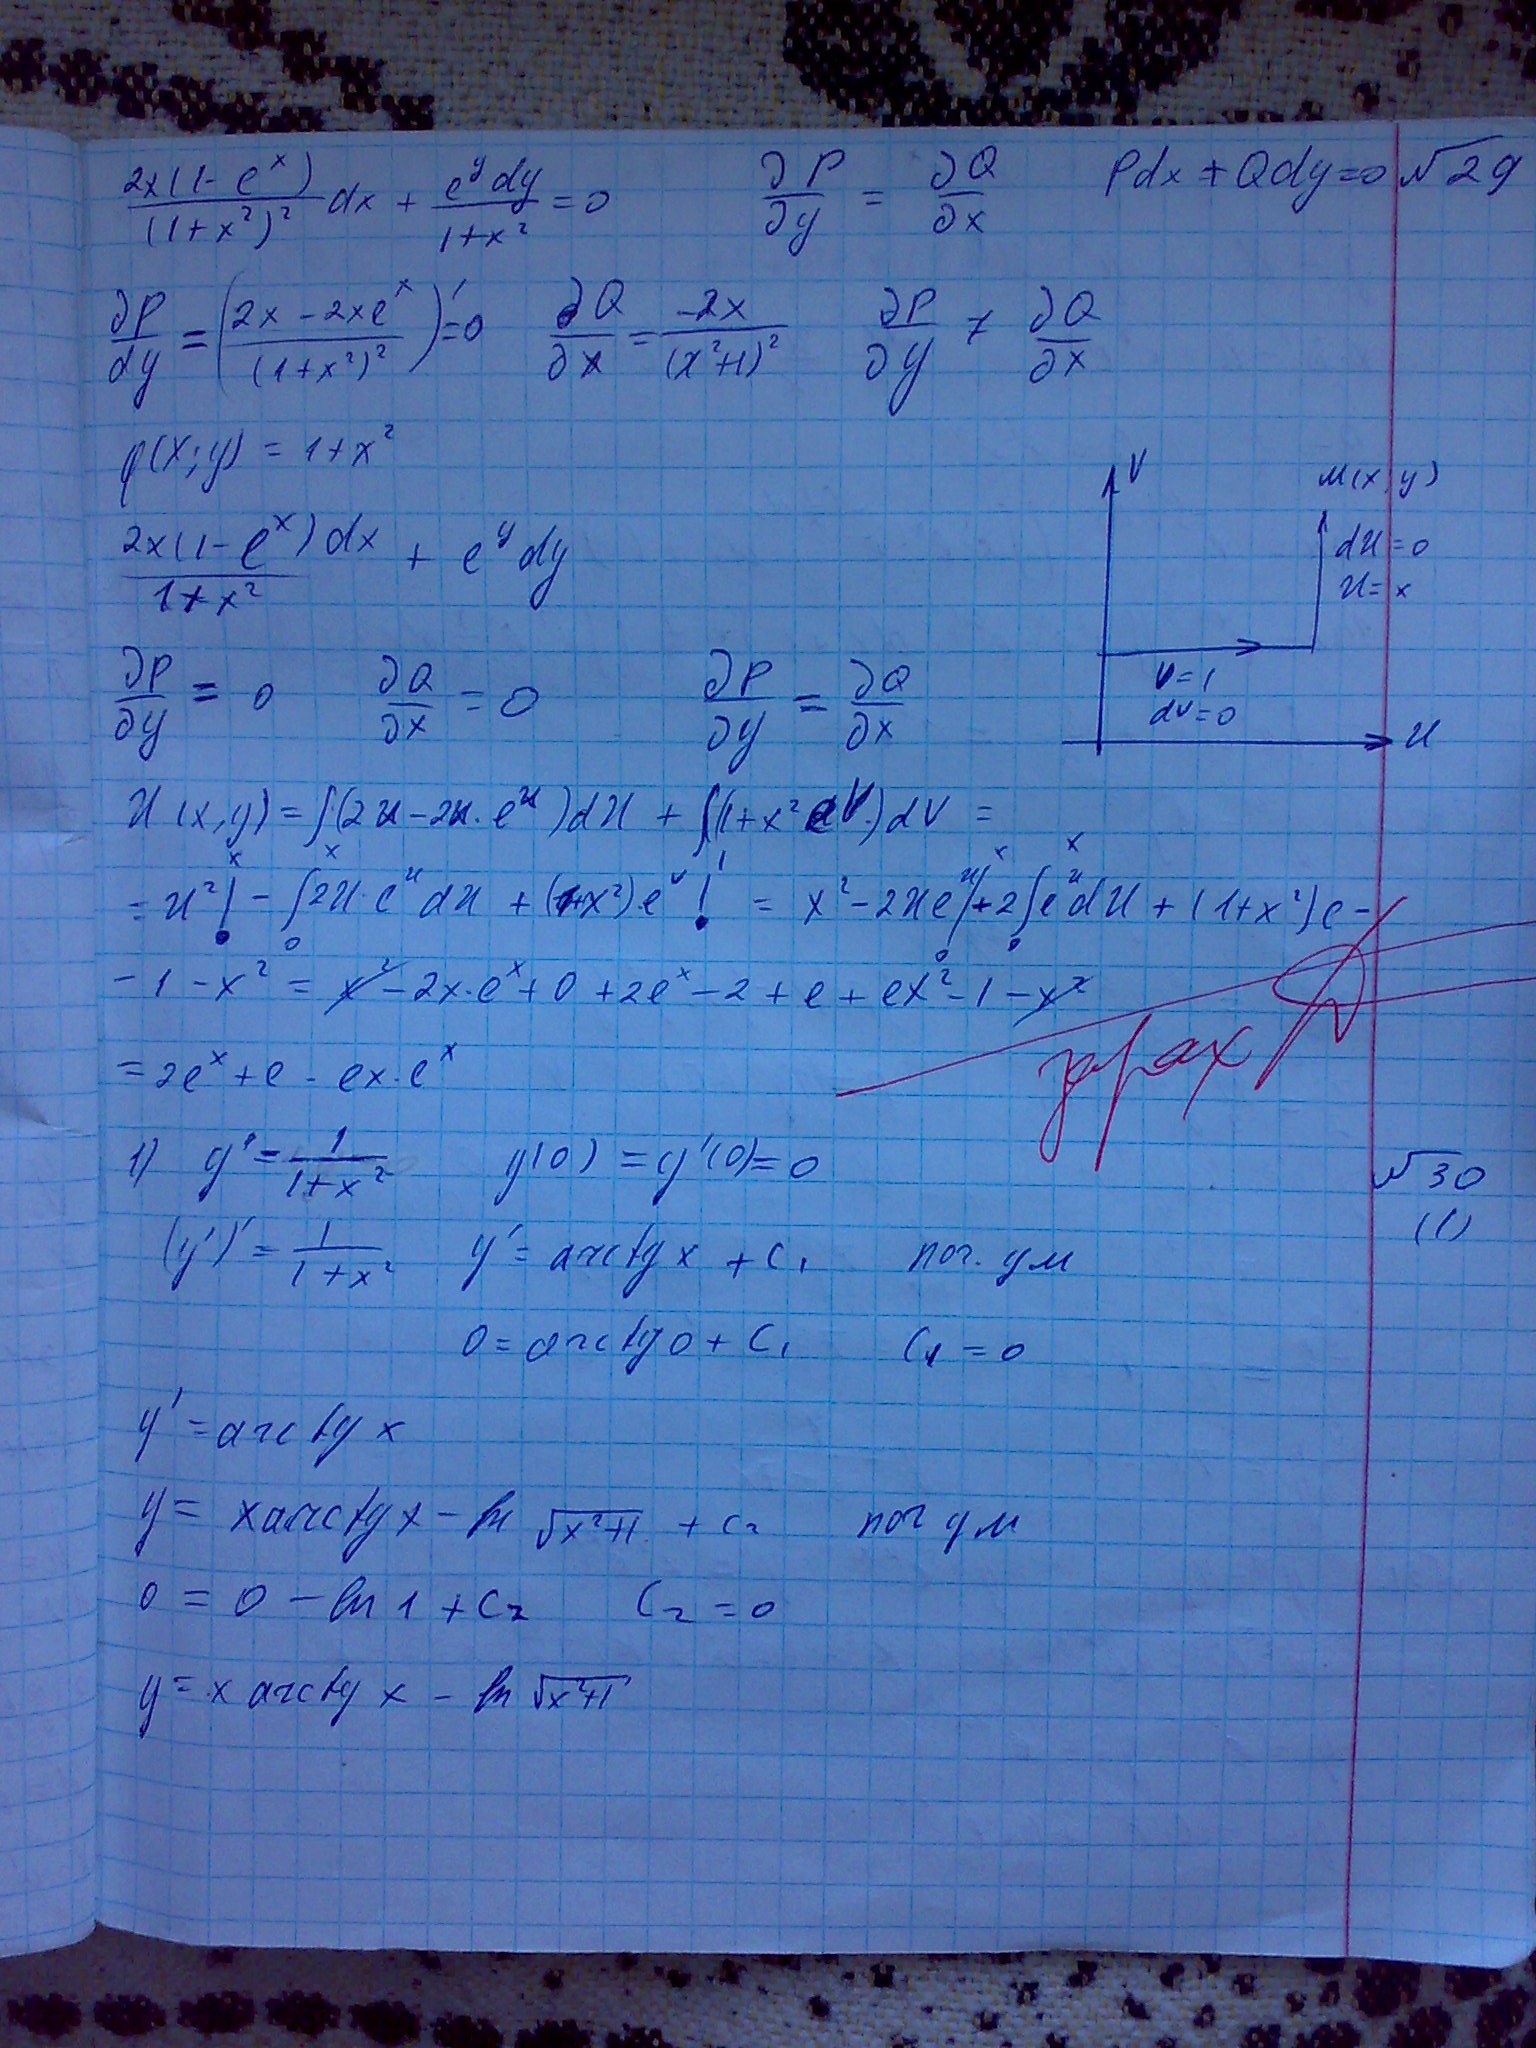 2x(1-e^x)/(1+x²)² dx + e^y dy/(1+x²) = 0   ∂P/∂y = ∂Q/∂x   Pdx + Qdy = 0   √29
∂P/dy = ((2x - 2xe^x)/(1+x²)²)' = 0   ∂Q/∂x = -2x/(x²+1)²   ∂P/∂y ≠ ∂Q/∂x
φ(x;y) = 1+x²
2x(1-e^x)dx/(1+x²) + e^y dy
V
M(x,y)
du=0
u=x
v=1
dv=0
u
∂P/∂y = 0   ∂Q/∂x = 0   ∂P/∂y = ∂Q/∂x
u(x,y) = ∫(2u - 2u·e^u)du + ∫(1+x² e^v)dv =
= u²|₀^x - ∫₀^x 2u·e^u du + (1+x²)·e^v|₀^1 = x² - 2ue^u|₀^x + 2∫₀^x e^u du + (1+x²)e -
- 1 - x² = x² - 2x·e^x + 0 + 2e^x - 2 + e + ex² - 1 - x²
= 2e^x + e - ex·e^x
1) y'' = 1/(1+x²)   y(0) = y'(0) = 0   √30
(1)
(y')' = 1/(1+x²)   y' = arctg x + C₁
0 = arctg 0 + C₁   C₁ = 0
y' = arctg x
y = x arctg x - ln √(x²+1) + C₂
0 = 0 - ln 1 + C₂   C₂ = 0
y = x arctg x - ln √(x²+1)